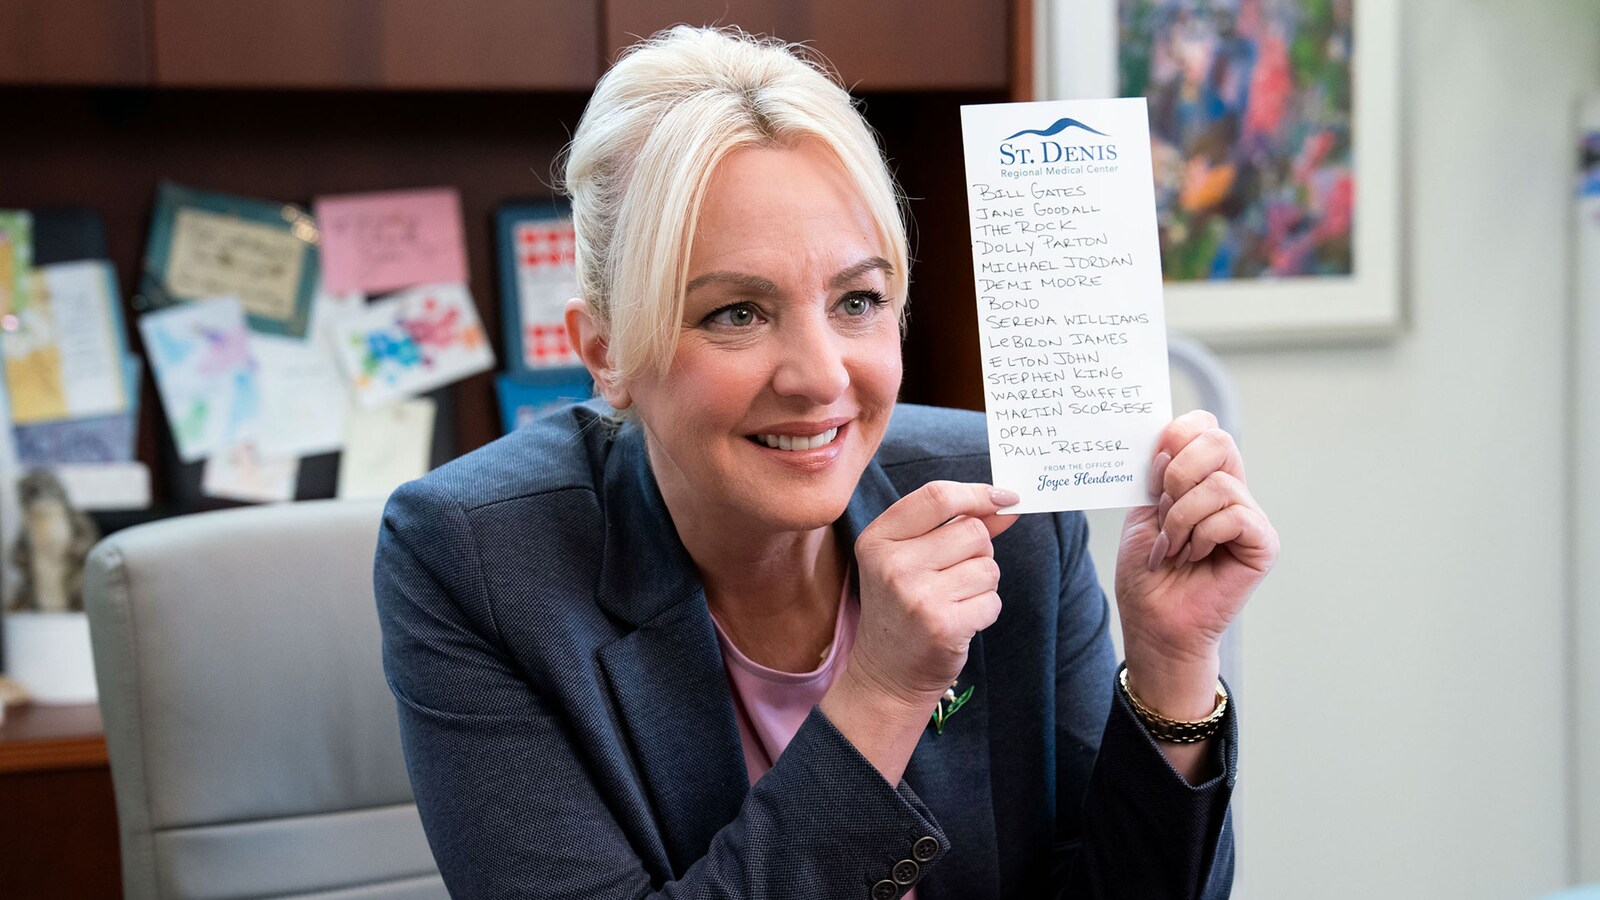 ST. DENIS
Regional Medical Center
BILL GATES
JANE GOODALL
THE ROCK
DOLLY PARTON
MICHAEL JORDAN
DEMI MOORE
BOND
SERENA WILLIAMS
LEBRON JAMES
ELTON JOHN
STEPHEN KING
WARREN BUFFET
MARTIN SCORSESE
OPRAH
PAUL REISER
FROM THE OFFICE OF
Joyce Henderson